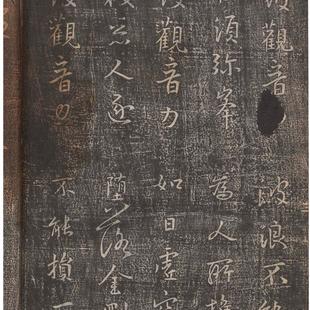 彼觀音 波浪不能
須彌峯 為人所推
彼觀音力 如日虛空
被惡人逐 墮落金剛
彼觀音力 不能損一